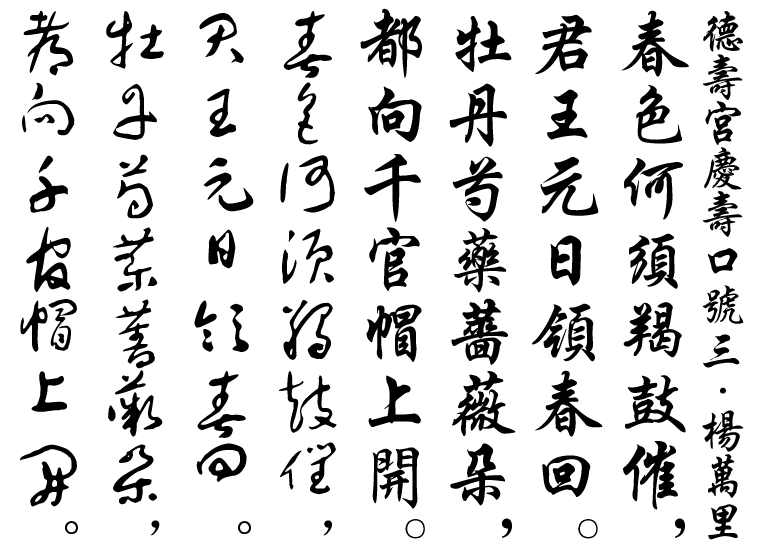 德壽宮慶壽口號三·楊萬里
春色何須羯鼓催，
君王元日領春回○
牡丹芍藥薔薇朵，
都向千官帽上開○
春色何须羯鼓催，
君王元日领春回。
牡丹芍药蔷薇朵，
都向千官帽上开。